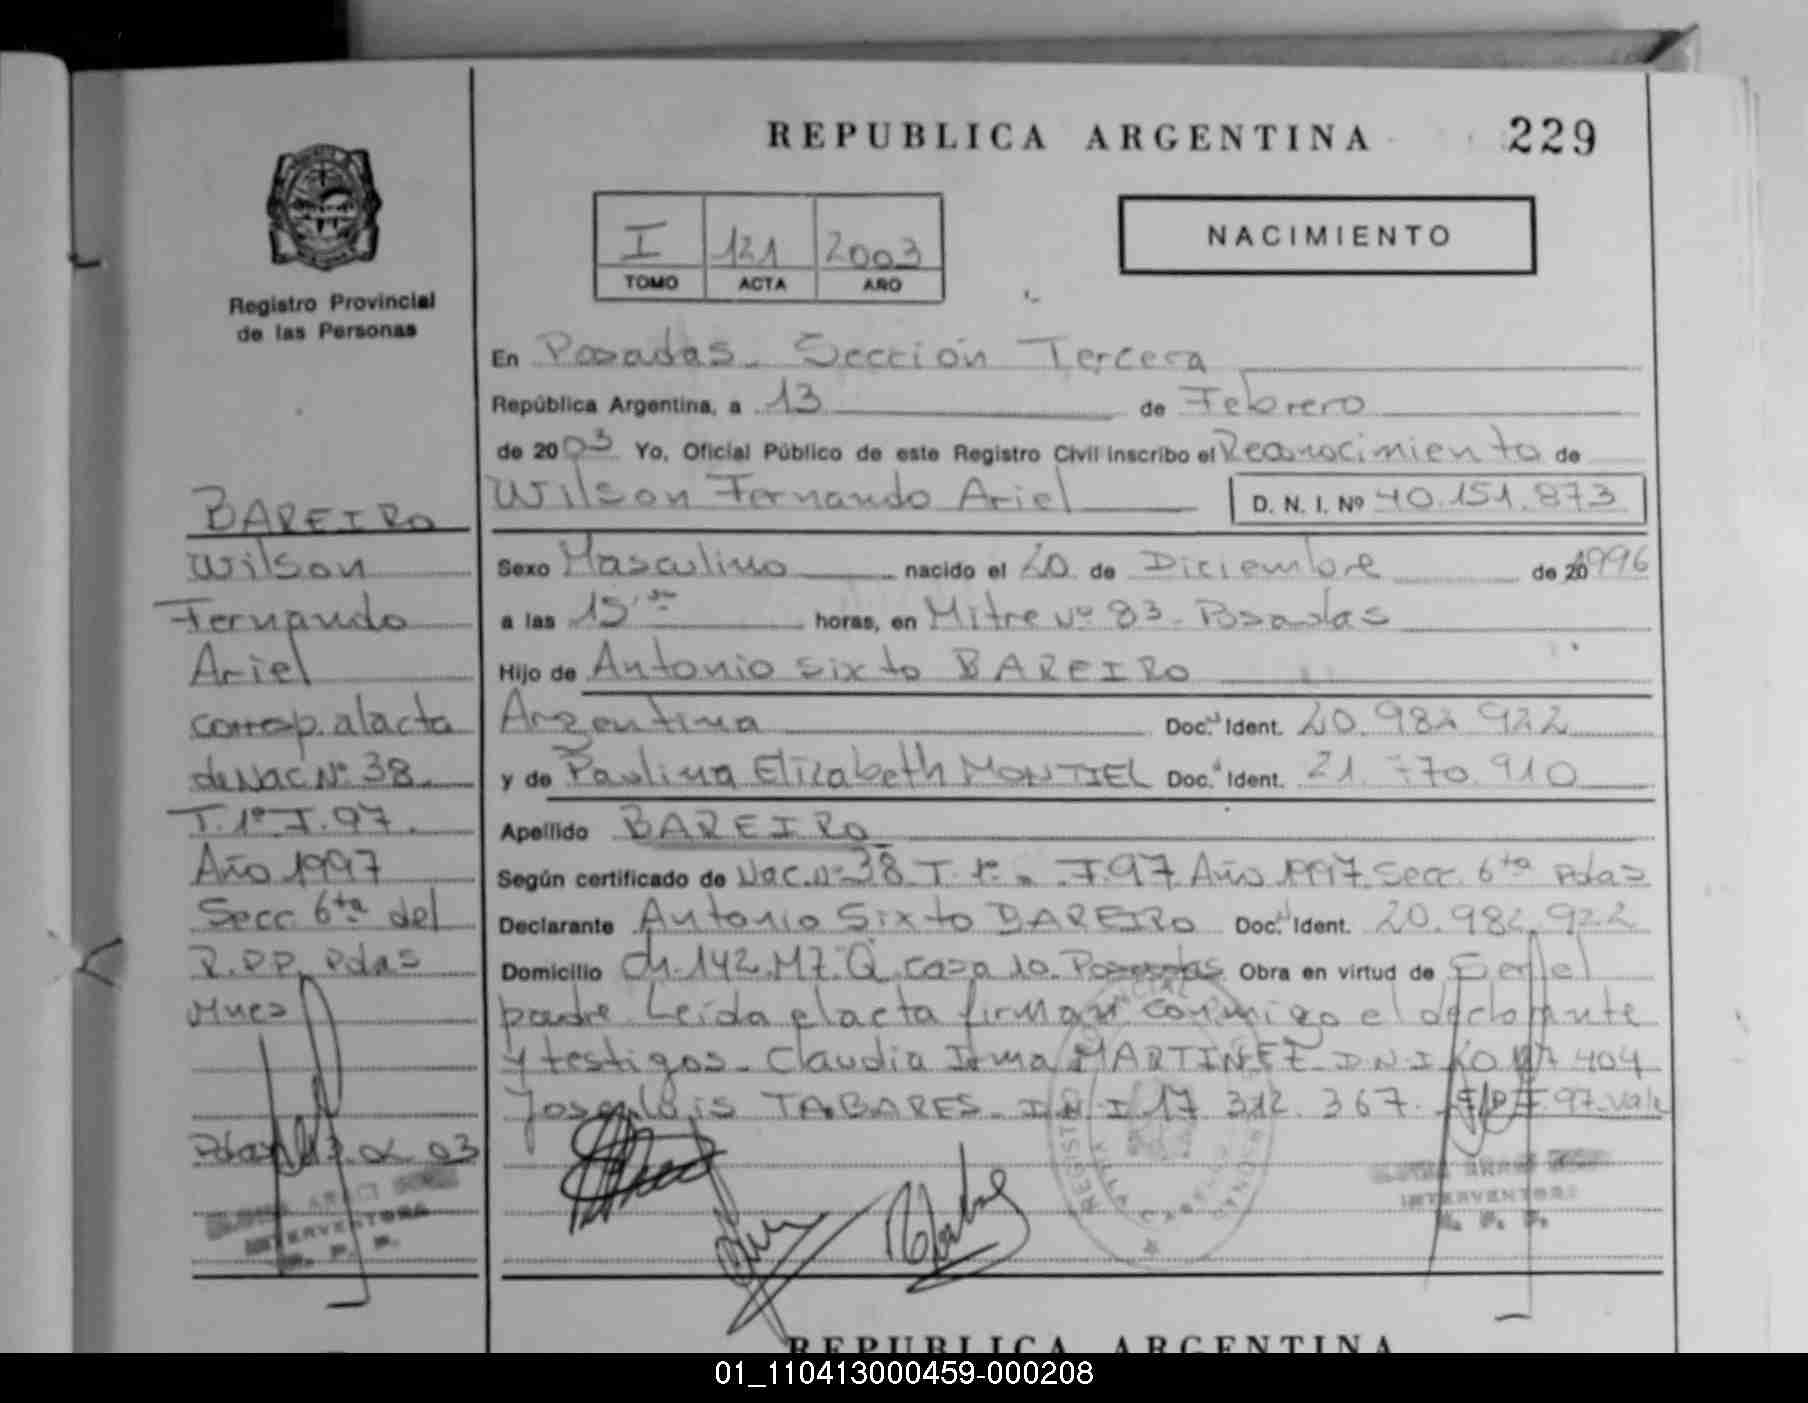 REPUBLICA ARGENTINA 229
I 121 2003
TOMO ACTA AÑO
NACIMIENTO
Registro Provincial
de las Personas
BAREIRO
Wilson
Fernando
Ariel
corresp. al acta
de Nac Nº 38.
T. 1º J. 97.
Año 1997
Secc 6ta del
R.P.P. Pdas
Mnes
Pdas 13. 02. 03
INTERVENTORA
R. P. P.
En Posadas - Sección Tercera
República Argentina, a 13 de Febrero
de 2003 Yo, Oficial Público de este Registro Civil inscribo el Reconocimiento de
Wilson Fernando Ariel D. N. I. Nº 40.151.873
Sexo Masculino nacido el 20 de Diciembre de 1996
a las 15 horas, en Mitre Nº 83 - Posadas
Hijo de Antonio Sixto BAREIRO
Argentina Doc. Ident. 20.982.922
y de Paulina Elizabeth MONTIEL Doc. Ident. 21.770.910
Apellido BAREIRO
Según certificado de Nac. Nº 38 T. 1º - J. 97 Año 1997 Secc. 6ta Pdas
Declarante Antonio Sixto BAREIRO Doc. Ident. 20.982.922
Domicilio Ch. 142. Mz. Q. casa 10. Posadas Obra en virtud de Ser el
padre. Leída el acta firman conmigo el declarante
y testigos - Claudia Irma MARTINEZ D.N.I 404
José Luis TABARES - D.N.I 17.312.367. 97. Vale
INTERVENTORA
R. P. P.
REPUBLICA ARGENTINA
01_110413000459-000208